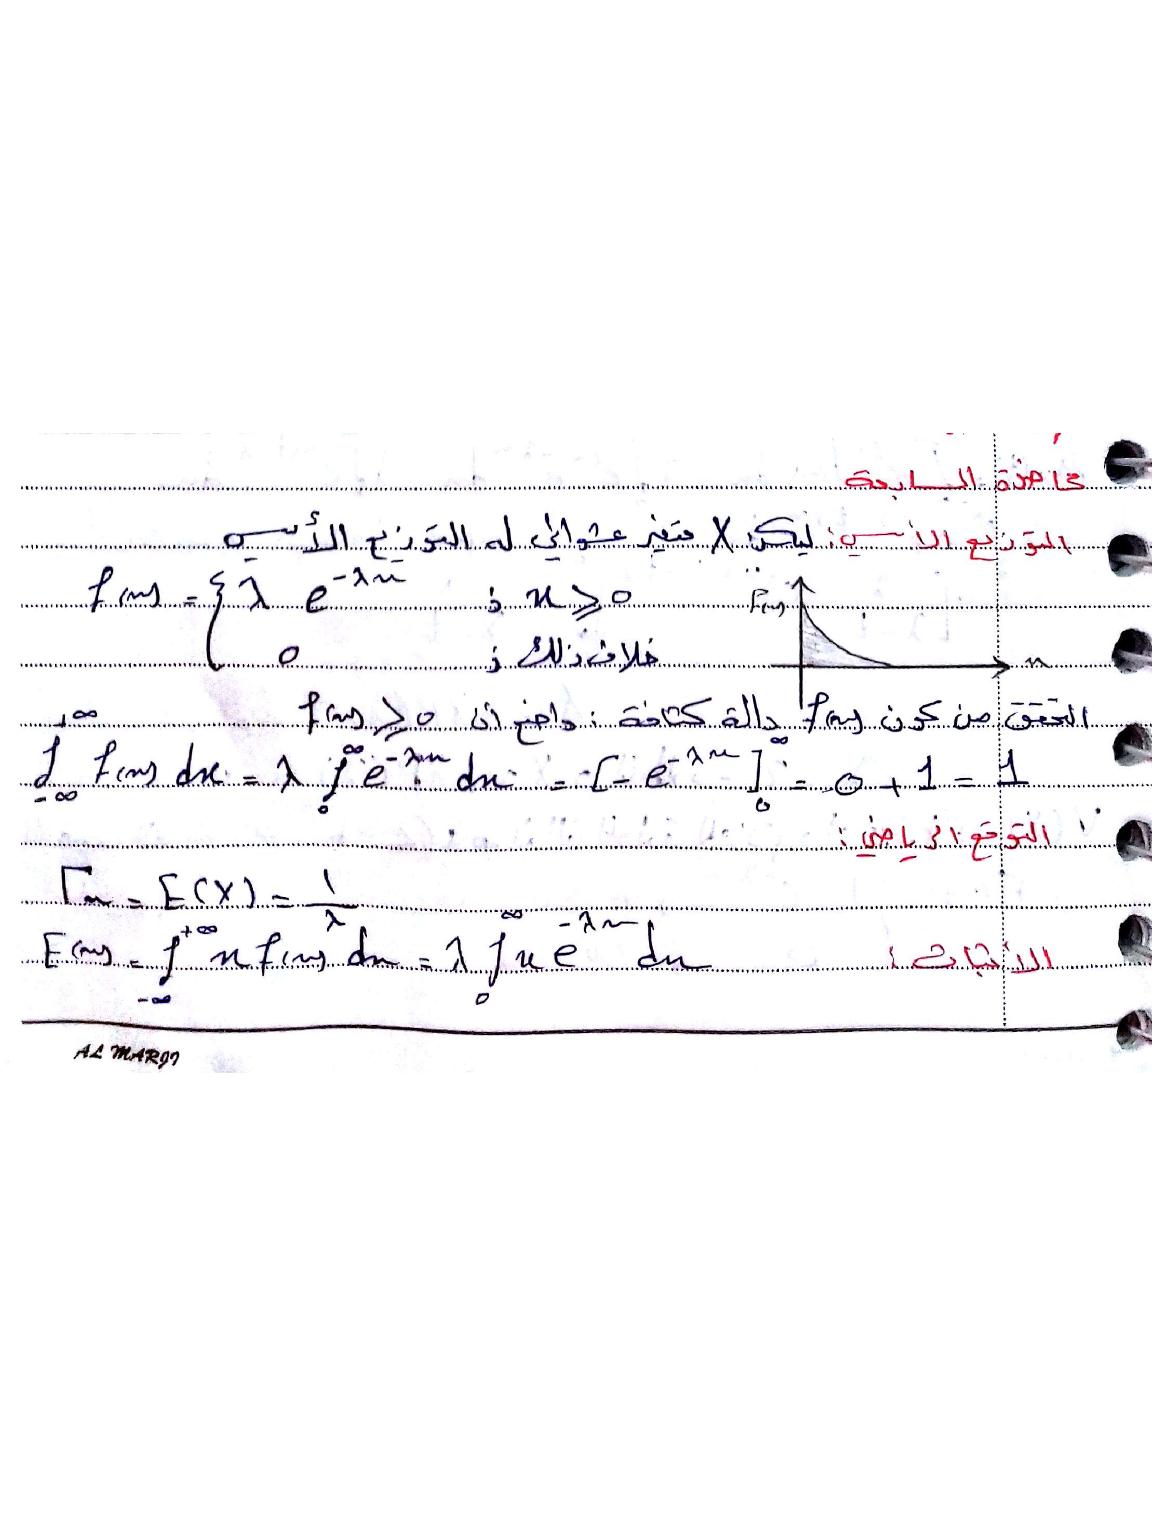 محاضرة السابعة
التوزيع الأسي: ليكن X متغير عشوائي له التوزيع الأسي
f(x) = { λ e^{-λx} ; x ≥ 0
0 ; خلاف ذلك
F(x)
x
التحقق من كون f(x) دالة كثافة: واضح أن f(x) ≥ 0
∫_{-∞}^{+∞} f(x) dx = λ ∫_0^∞ e^{-λx} dx = [-e^{-λx}]_0^∞ = 0 + 1 = 1
التوقع الرياضي:
Γx = E(X) = 1/λ
الاثبات: E(x) = ∫_{-∞}^{+∞} x f(x) dx = λ ∫_0^∞ x e^{-λx} dx
AL MARJI